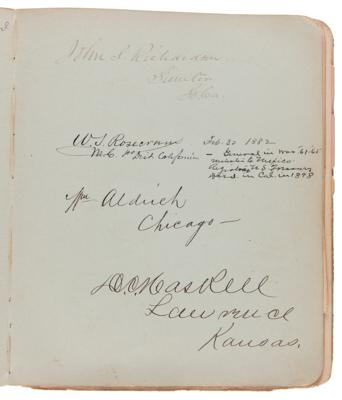 John S. Richardson
Sumter
S. Ca.
W. S. Rosecrans Feb. 20 1882
M.C. 1st Dist California – General in War '61/'65
minister to Mexico
Register U.S. Treasury
died in Cal. in 1898
Wm Aldrich
Chicago –
D. C. Haskell
Lawrence
Kansas.